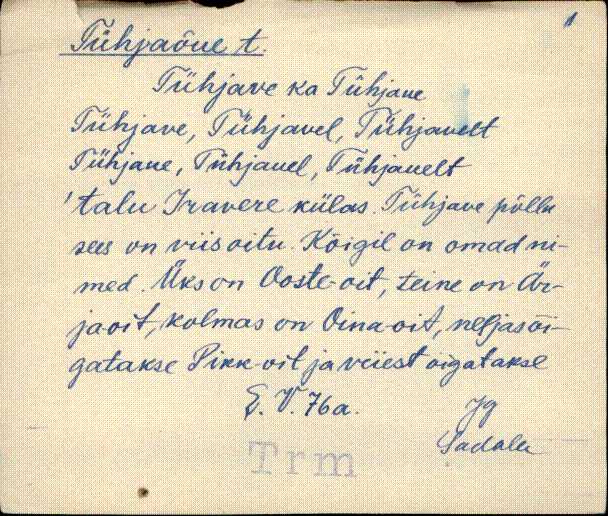 Tühjaõue t.
Tühjave ka Tühjaue
Tühjave, Tühjavel, Tühjavelt
Tühjaue, Tühjauel, Tühjauelt
'talu Iravere külas. Tühjave põllu
sees on viis oitu. Kõigil on omad ni-
med. Üks on Ooste-oit, teine on Är-
jaoit, kolmas on Oina-oit, neljas õi-
gatakse Pikk-oit ja veiest õigatakse
E. V. 76 a.
Jg
Sadala
Trm